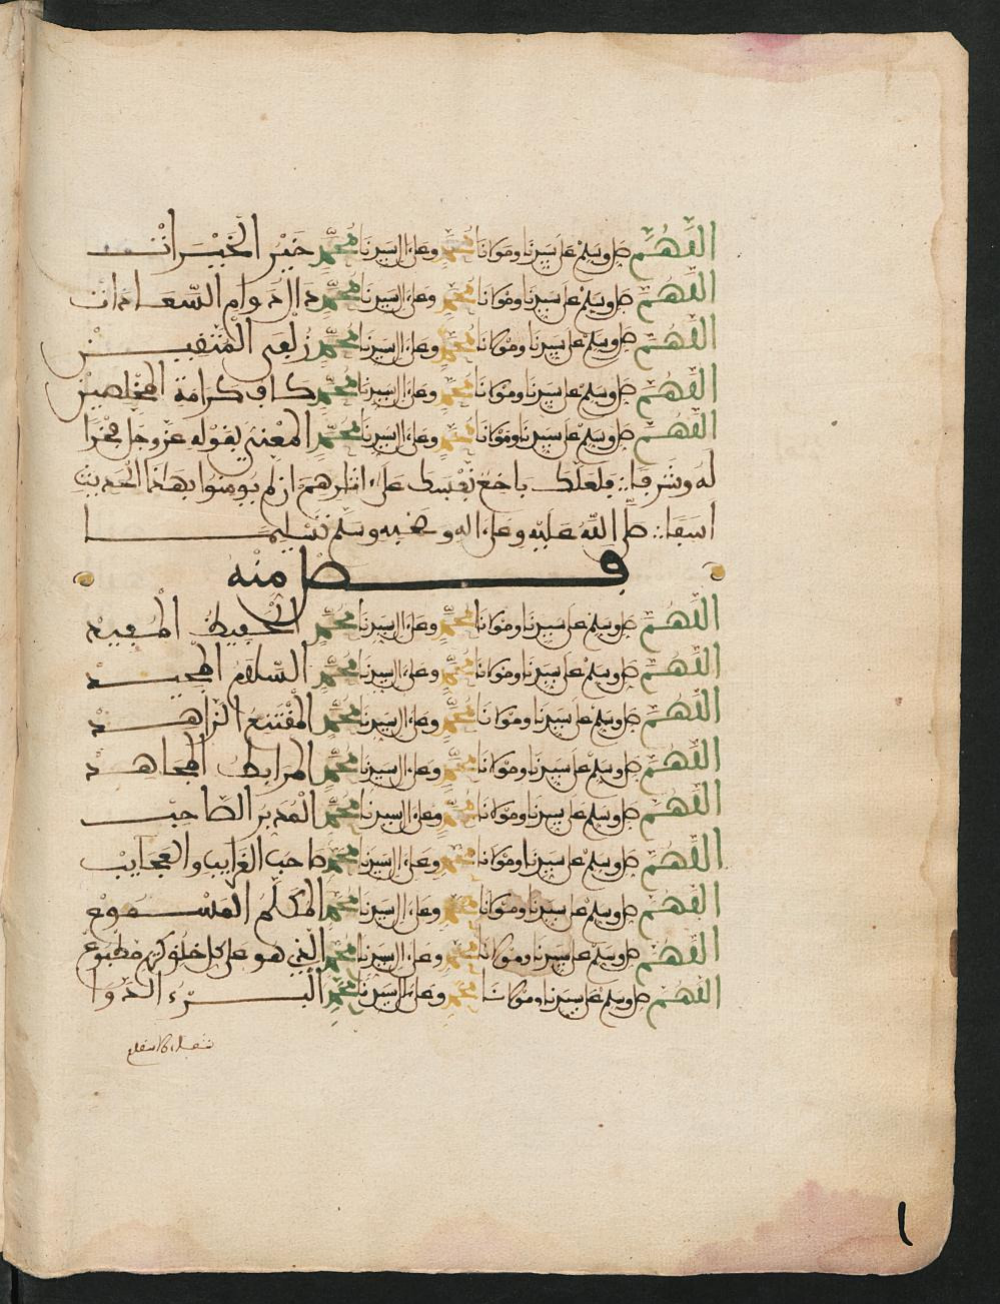 اللهم صل وسلم على سيدنا ومولانا محمد وعلى ال سيدنا محمد خير الخيرات
اللهم صل وسلم على سيدنا ومولانا محمد وعلى ال سيدنا محمد دال دوام السعادات
اللهم صل وسلم على سيدنا ومولانا محمد وعلى ال سيدنا محمد المتقين
اللهم صل وسلم على سيدنا ومولانا محمد وعلى ال سيدنا محمد كاف كرامة المخلصين
اللهم صل وسلم على سيدنا ومولانا محمد وعلى ال سيدنا محمد المعتنى بقوله عز وجل فخرا
له وشرفا فلعلك باخع نفسك على ءاثارهم ان لم يومنوا بهذا الحديث
اسفا صلى الله عليه وعلى اله وصحبه وسلم تسليما
فصل منه
اللهم صل وسلم على سيدنا ومولانا محمد وعلى ال سيدنا محمد الحفيظ المفيد
اللهم صل وسلم على سيدنا ومولانا محمد وعلى ال سيدنا محمد السلام المجيد
اللهم صل وسلم على سيدنا ومولانا محمد وعلى ال سيدنا محمد المقتنع الزاهد
اللهم صل وسلم على سيدنا ومولانا محمد وعلى ال سيدنا محمد المرابط المجاهد
اللهم صل وسلم على سيدنا ومولانا محمد وعلى ال سيدنا محمد المدبر الصاحب
اللهم صل وسلم على سيدنا ومولانا محمد وعلى ال سيدنا محمد صاحب الغرايب والعجايب
اللهم صل وسلم على سيدنا ومولانا محمد وعلى ال سيدنا محمد المكلم المسموع
اللهم صل وسلم على سيدنا ومولانا محمد وعلى ال سيدنا محمد الذي هو على كل خلق كريم مطبوع
اللهم صل وسلم على سيدنا ومولانا محمد وعلى ال سيدنا محمد البرء الدوا